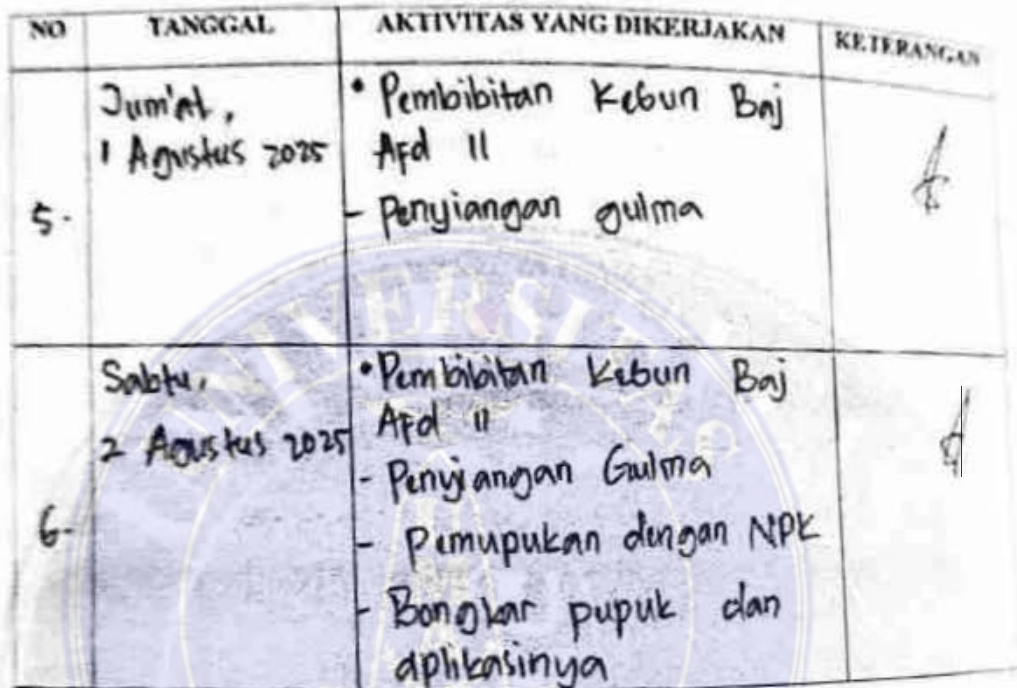 NO TANGGAL AKTIVITAS YANG DIKERJAKAN KETERANGAN
5.
Jum'at,
1 Agustus 2025
• Pembibitan Kebun Baj
Afd II
- Penyiangan gulma
6.
Sabtu,
2 Agustus 2025
• Pembibitan Kebun Baj
Afd II
- Penyiangan Gulma
- Pemupukan dengan NPK
- Bongkar pupuk dan
aplikasinya
UNIVERSITAS